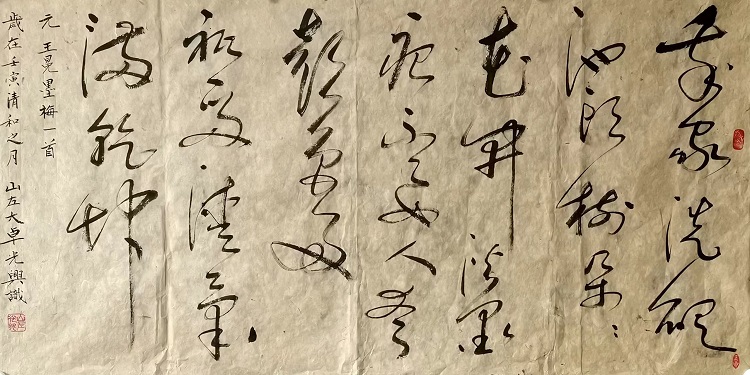 我家洗硯
池頭樹朵〻
花開淡墨
痕不要人夸
顏色好
祇留清氣
滿乾坤
元 王冕墨梅一首
歲在壬寅清和之月 山左大卓光興識